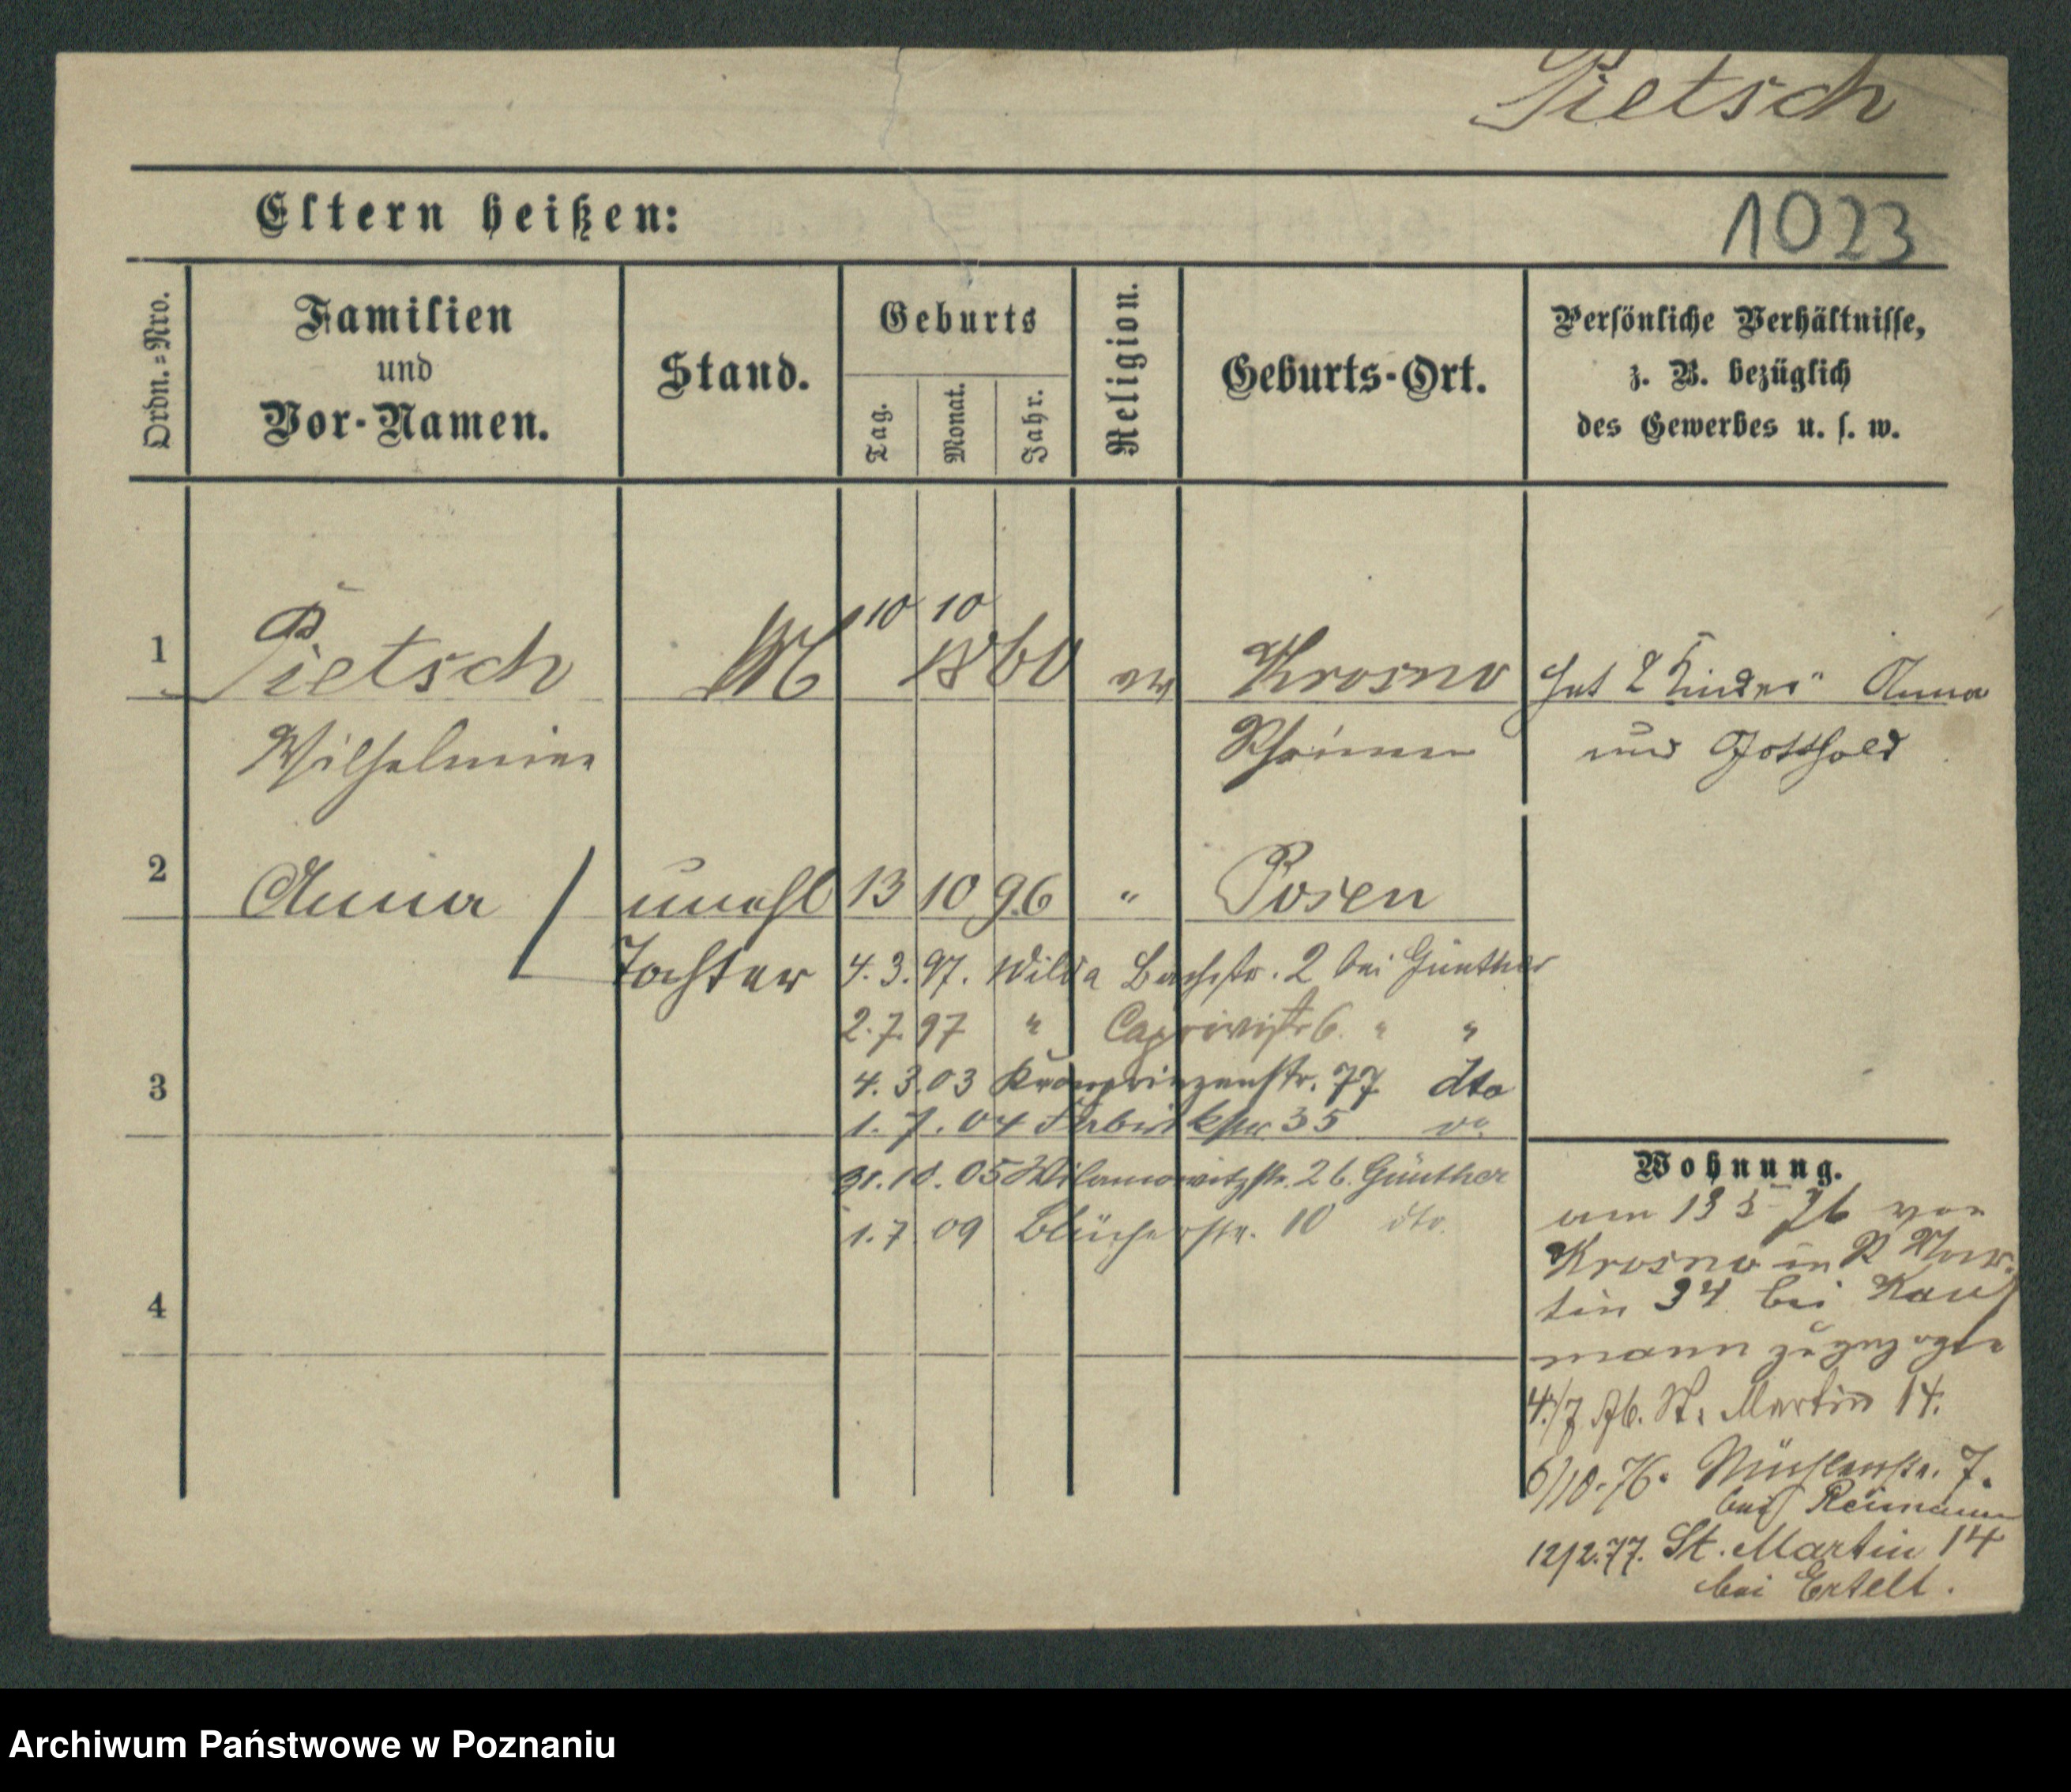 Pietsch
Eltern heißen:
1023
Ordn.=Nro.
Familien
und
Vor-Namen.
Stand.
Geburts
Tag.
Monat.
Jahr.
Religion.
Geburts-Ort.
Persönliche Verhältnisse,
z. B. bezüglich
des Gewerbes u. s. w.
1
Pietsch
10 10
1860
ev
Krosno
hat 2 Kinder Anna
Wilhelmine
Schrimm
und Gotthold
2
Anna
unehl
13 10 96
"
Posen
Tochter
4. 3. 97. Wilda Bachstr. 2 bei Günther
2. 7. 97 " Caprivistr 6. " "
3
4. 3. 03 Kronprinzenstr. 77 dto
1. 7. 04 35 do
31. 10. 05 Wilamowitzstr. 26. Günther
1. 7. 09 Blücherstr. 10 dto.
Wohnung.
am 13 5 76 von
Krosno in St Mar-
4
tin 34 bei Kauf
mann zugezogen
4./7 76. St. Martin 14.
6/10. 76. Mühlenstr. 7.
bei Reimann
12/2. 77. St. Martin 14
bei Ertelt.
Archiwum Państwowe w Poznaniu